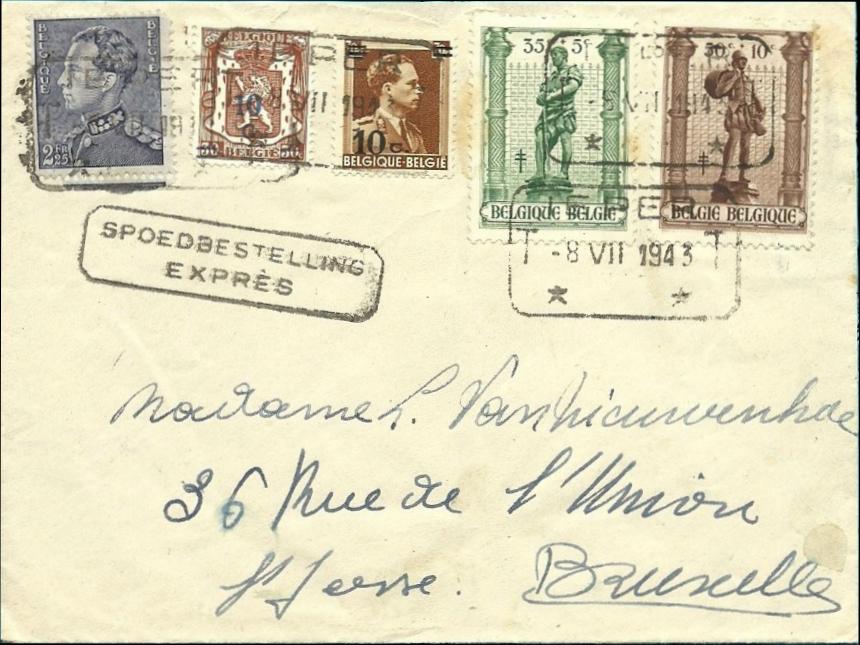 BELGIQUE BELGIE
2 FR 25
BELGIQUE
10 c
50 BELGIË 50
10 c.
BELGIQUE-BELGIË
35c 5c
BELGIQUE BELGIE
50c 10c
BELGIE BELGIQUE
IEPER
T -8 VII 1943 T
IEPER
T -8 VII 1943 T
SPOEDBESTELLING
EXPRÈS
Madame L. Vannieuwenhove
36 Rue de l'Union
St Josse. Bruxelles